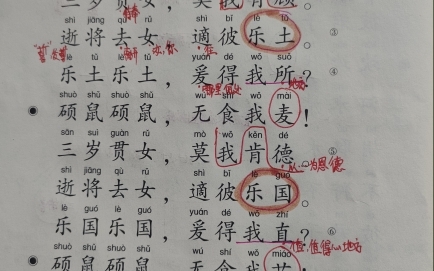 三岁贯女，莫我肯顾。
shì jiāng qù rǔ shì bǐ lè tǔ
逝将去女，適彼乐土。③
lè tǔ lè tǔ yuán dé wǒ suǒ
乐土乐土，爰得我所？④
shuò shǔ shuò shǔ wú shí wǒ mài
硕鼠硕鼠，无食我麦！
sān suì guàn rǔ mò wǒ kěn dé
三岁贯女，莫我肯德。⑤
shì jiāng qù rǔ shì bǐ lè guó
逝将去女，適彼乐国。
lè guó lè guó yuán dé wǒ zhí
乐国乐国，爰得我直？⑥
shuò shǔ shuò shǔ wú shí wǒ miáo
硕鼠硕鼠，无食我苗！